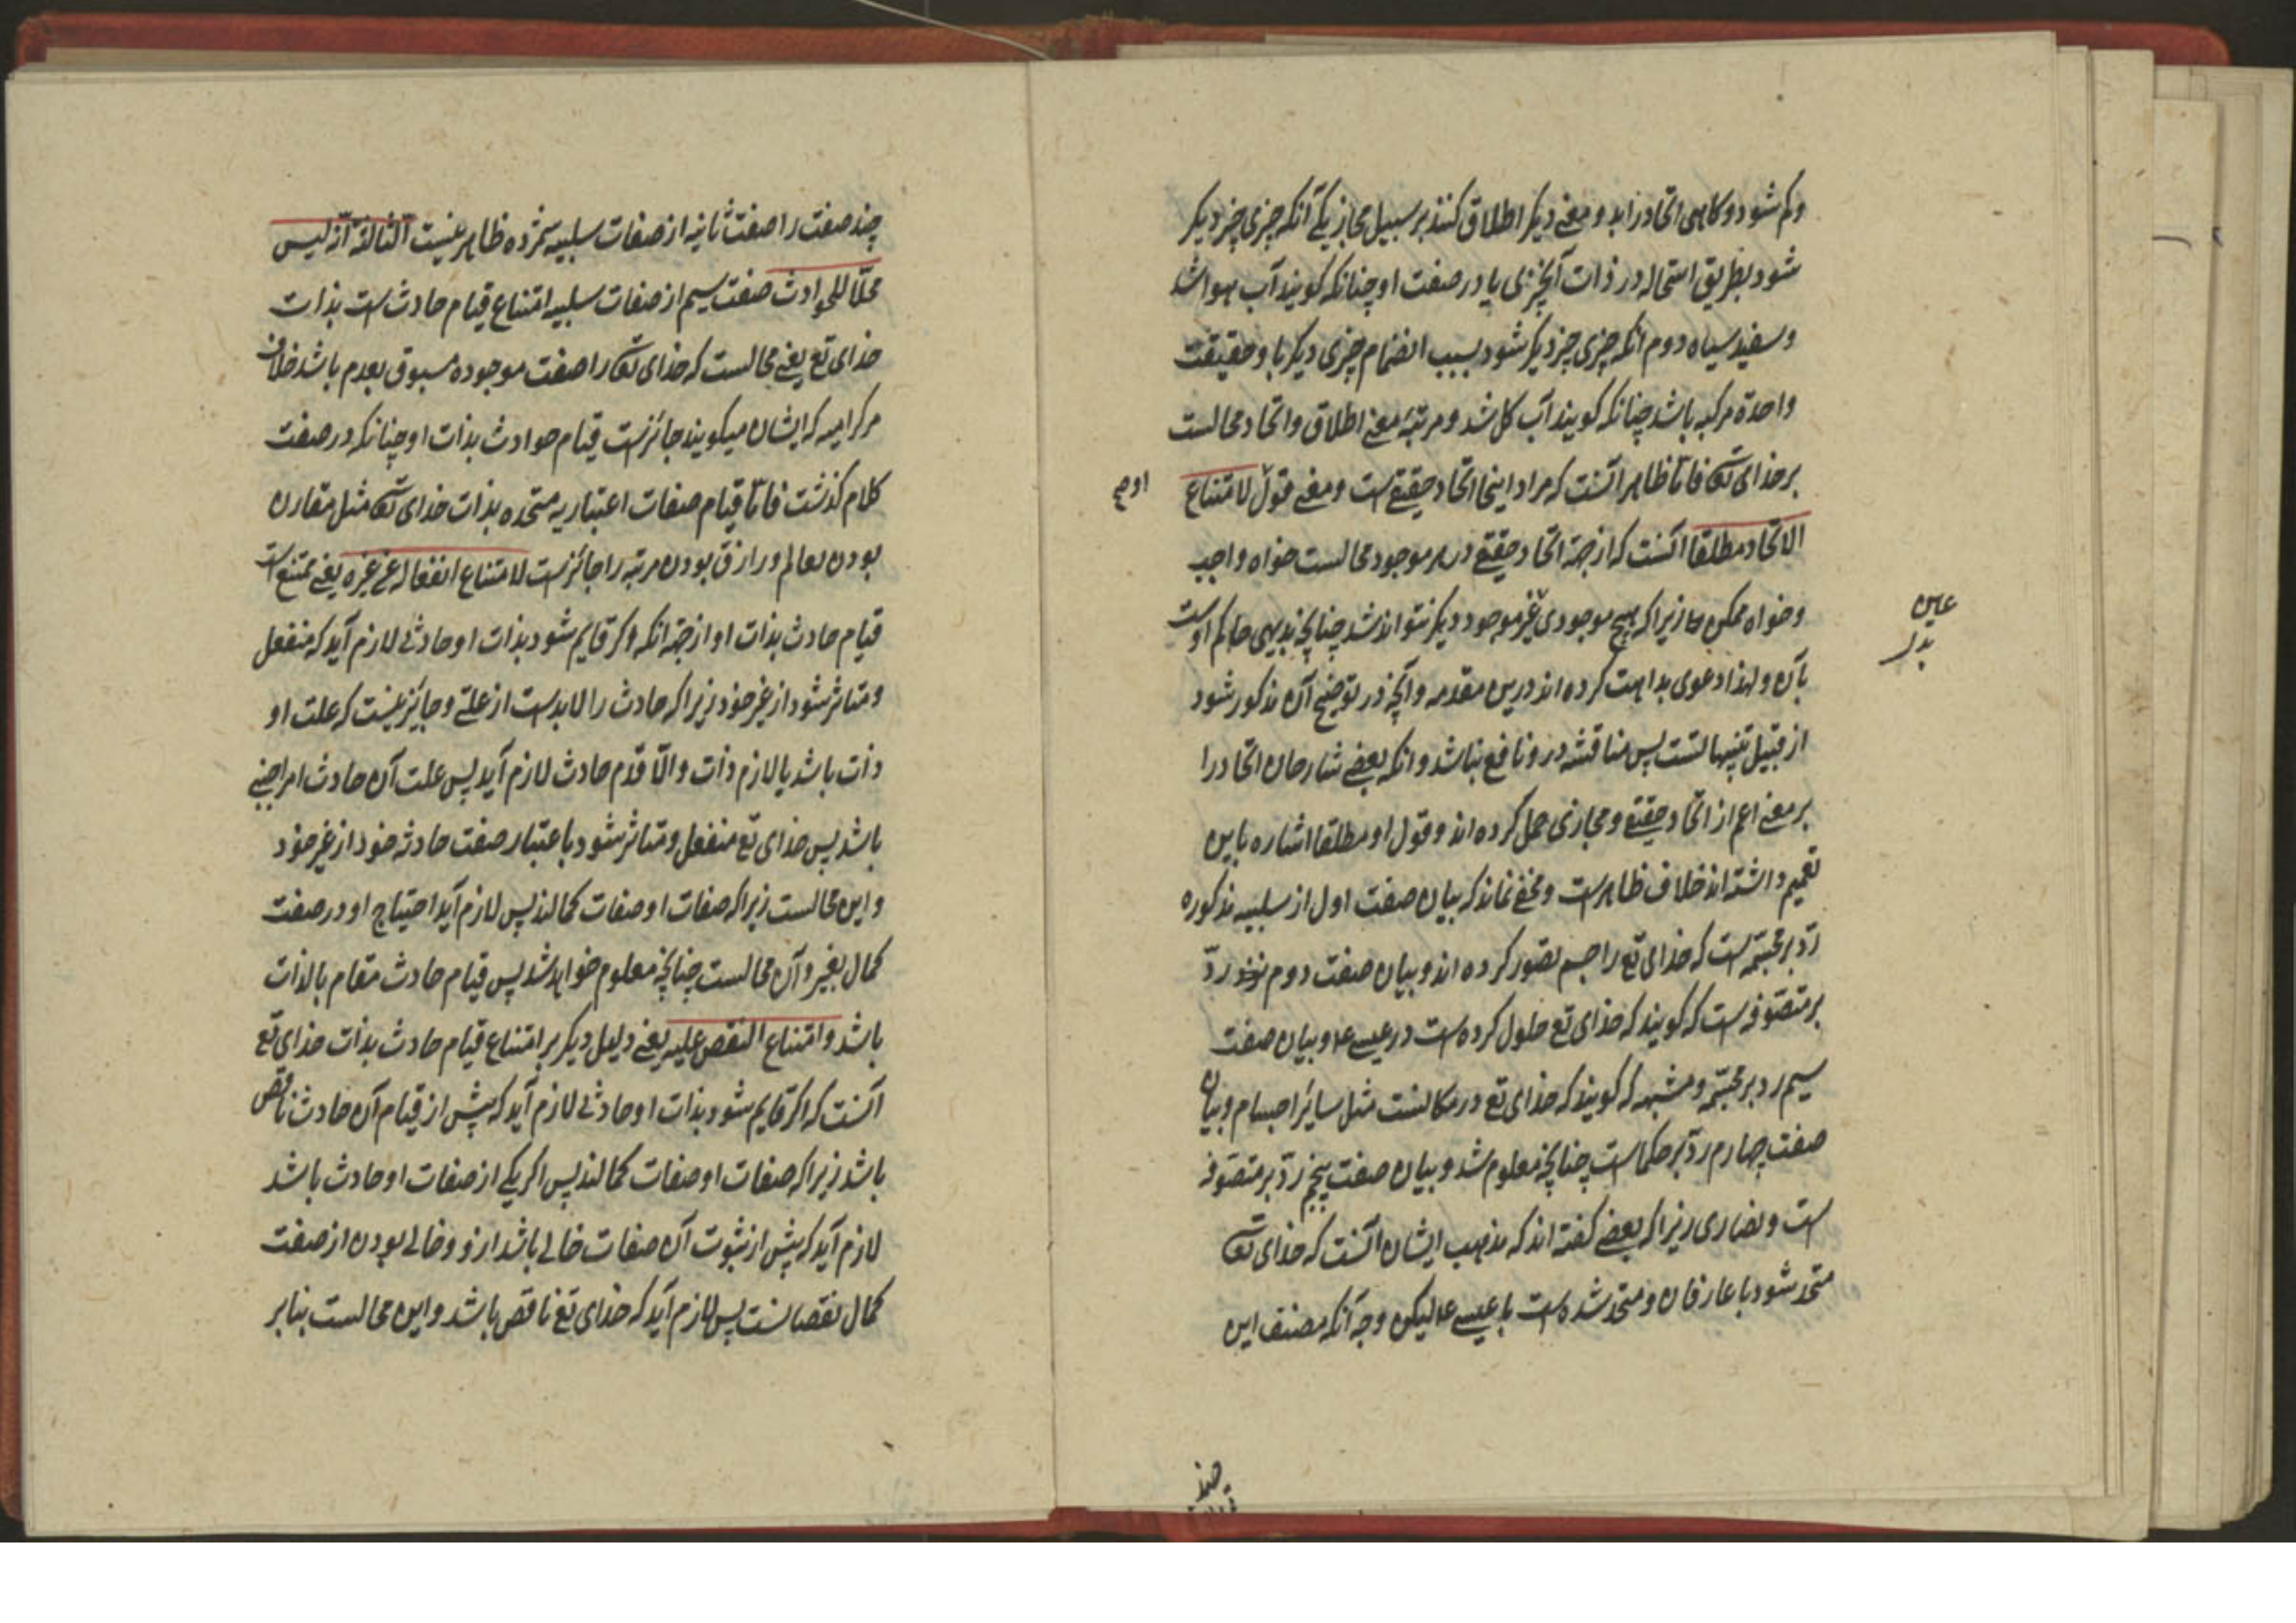 و کم شود و کاهی اتحاد را بد و معنی دیکر اطلاق کنند بر سبیل مجاز یکی آنکه چیزی چیز دیکر
شود بطریق استحاله در ذات آنچیزی یا در صفت او چنانکه کویند آب هوا شد
و سفید سیاه دوم آنکه چیزی چیز دیکر شود بسبب انضمام چیزی دیکر با و حقیقت
واحدة مرکبه باشد چنانکه کویند آب کل شد و مرتبه معنی اطلاق و اتحاد محالست
بر خدای تعالی فاما ظاهر آنست که مراد اینجا اتحاد حقیقی است و معنی قول لامتناع
الاتحاد مطلقا آنست که از جهة اتحاد حقیقی در هر موجود محالست خواه واجب
و خواه ممکن زیرا که هیچ موجودی غیر موجود دیکر نتواند شد چنانچه بدیهی حاکم است
بآن و لهذا دعوی بداهت کرده اند درین مقدمه و آنچه در توضیح آن مذکور شود
از قبیل تنبیهاتست پس مناقشه در و نافع نباشد و آنکه بعضی شارحان اتحاد را
بر معنی اعم از اتحاد حقیقی و مجازی حمل کرده اند و قول او مطلقا اشاره باین
تعمیم داشته اند خلاف ظاهرست و مخفی نماند که بیان صفت اول از سلبیه مذکوره
ردّ بر مجسّمه است که خدای تع را جسم تصوّر کرده اند و بیان صفت دوم ردّ
بر متصوّفه است که کویند که خدای تع حلول کرده است در عیسی ع و بیان صفت
سیم رد بر مجسّمه و مشبهه که کویند که خدای تع در مکانست مثل سایر اجسام و بیان
صفت چهارم ردّ بر حکماست چنانچه معلوم شد و بیان صفت پنجم ردّ بر متصوّفه
است و نصاری زیرا که بعضی کفته اند که مذهب ایشان آنست که خدای تعالی
متحد شود با عارفان و متحد شده است با عیسی ع لیکن وجه آنکه مصنف این
عین
بدل
چند
چند صفت را صفت ثانیه از صفات سلبیه شمرده ظاهر نیست الثالثة انّه لیس
محلّا للحوادث صفت سیم از صفات سلبیه امتناع قیام حادث است بذات
خدای تع یعنی محالست که خدای تعالی را صفت موجوده مسبوق بعدم باشد خلاف
مر کرامیه که ایشان میکویند جائزست قیام حوادث بذات او چنانکه در صفت
کلام کذشت فاما قیام صفات اعتباریه متجدده بذات خدای تعالی مثل مقارن
بودن بعالم و رازق بودن مرتبه را جائزست لامتناع انفعاله عن غیره یعنی ممتنع است
قیام حادث بذات او از جهة آنکه اکر قایم شود بذات او حادثی لازم آید که منفعل
و متاثر شود از غیر خود زیرا که حادث را لابدست از علتی و جایز نیست که علت او
ذات باشد یا لازم ذات و الّا قدم حادث لازم آید پس علت آن حادث امر اجنبی
باشد پس خدای تع منفعل و متاثر شود باعتبار صفت حادثه خود از غیر خود
و این محالست زیرا که صفات او صفات کمالند پس لازم آید احتیاج او در صفت
کمال بغیر و آن محالست چنانچه معلوم خواهد شد پس قیام حادث مقام بالذات
باشد و امتناع النقص علیه یعنی دلیل دیکر بر امتناع قیام حادث بذات خدای تع
آنست که اکر قایم شود بذات او حادثی لازم آید که پیش از قیام آن حادث ناقص
باشد زیرا که صفات او صفات کمالند پس اکر یکی از صفات او حادث باشد
لازم آید که پیش از ثبوت آن صفات خالی باشد ازو و خالی بودن از صفت
کمال نقصانست پس لازم آید که خدای تع ناقص باشد و این محالست بنابر